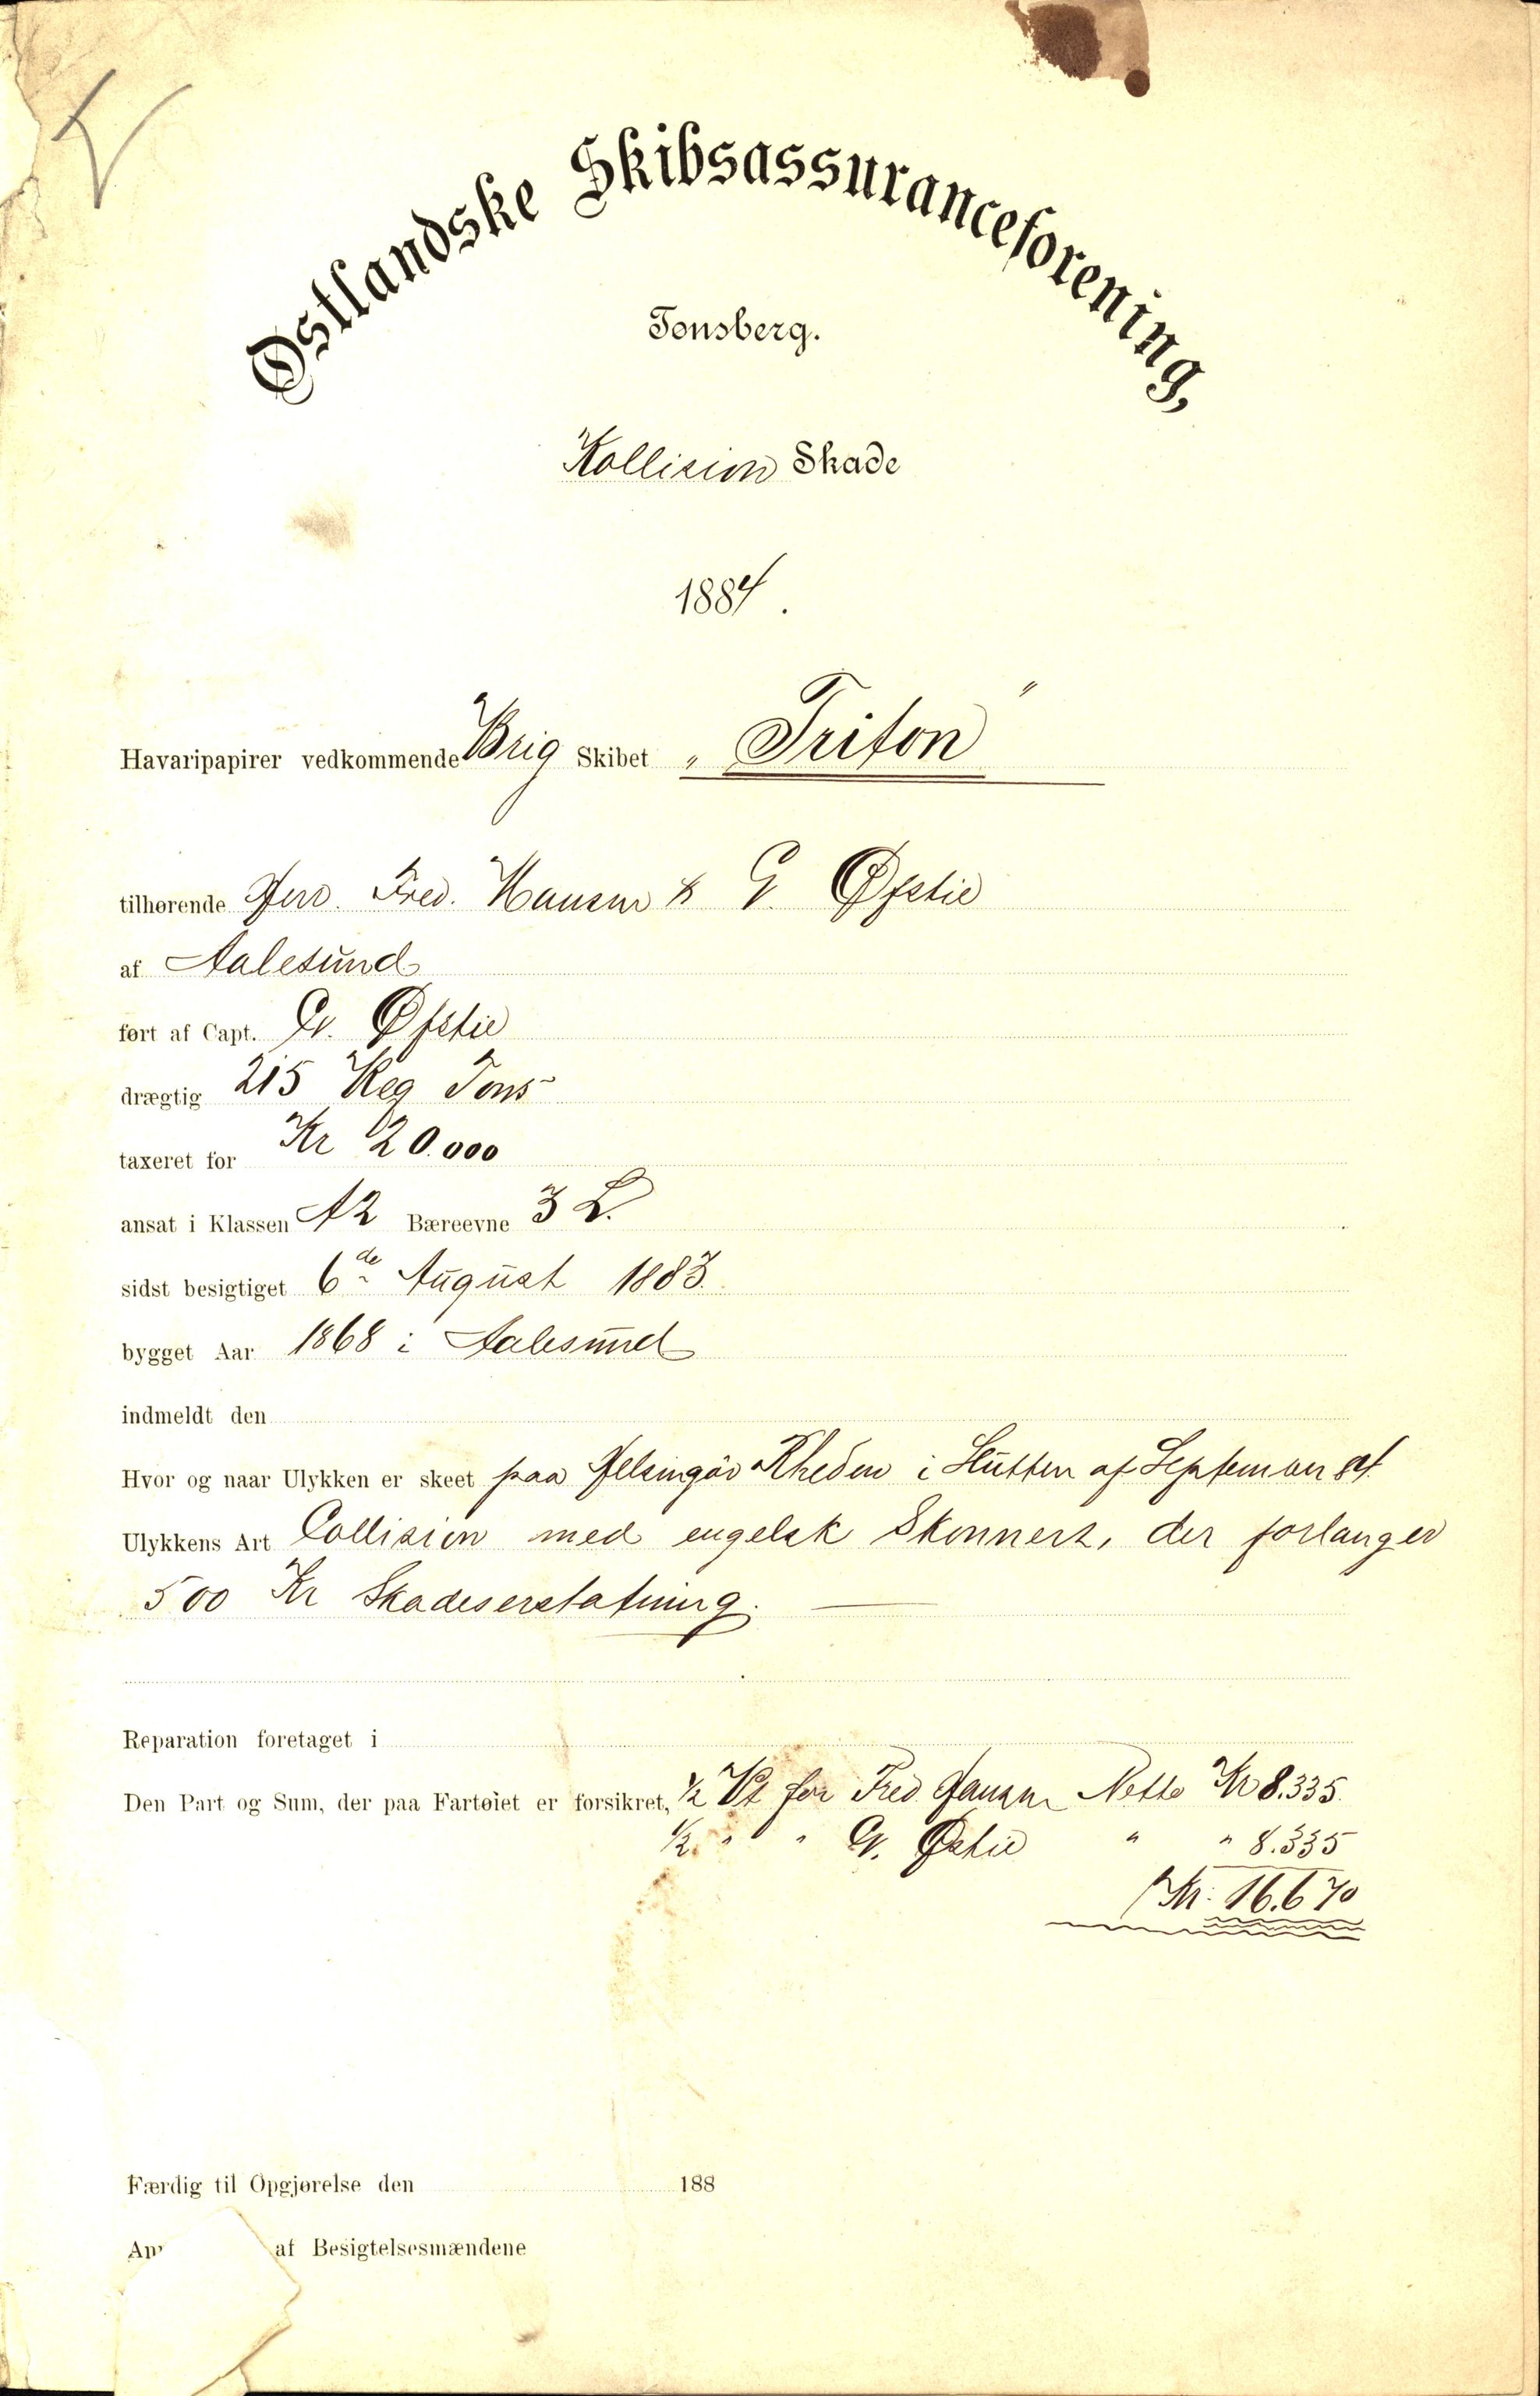 Østlandske Skibsassuranceforening,
Tønsberg.
Kollision Skade
1884.
Havaripapirer vedkommende Brig Skibet „Triton"
tilhørende Herr. Fred. Hansen & G. Øfstie
af Aalesund
ført af Capt. G. Øfstie
drægtig 215 Reg Tons
taxeret for Kr 20.000
ansat i Klassen A2 Bæreevne 3 L.
sidst besigtiget 6de August 1883.
bygget Aar 1868 i Aalesund
indmeldt den
Hvor og naar Ulykken er skeet paa Helsingør Rheden i Slutten af September 84
Ulykkens Art Collision med engelsk Skonnert, der forlanger
500 Kr Skadeserstatning.
Reparation foretaget i
Den Part og Sum, der paa Fartøiet er forsikret, 1/2 Pt for Fred Hansen Netto Kr 8.335.
1/2 " " G. Østie " " 8.335
Kr. 16.670
Færdig til Opgjørelse den 188
af Besigtelsesmændene